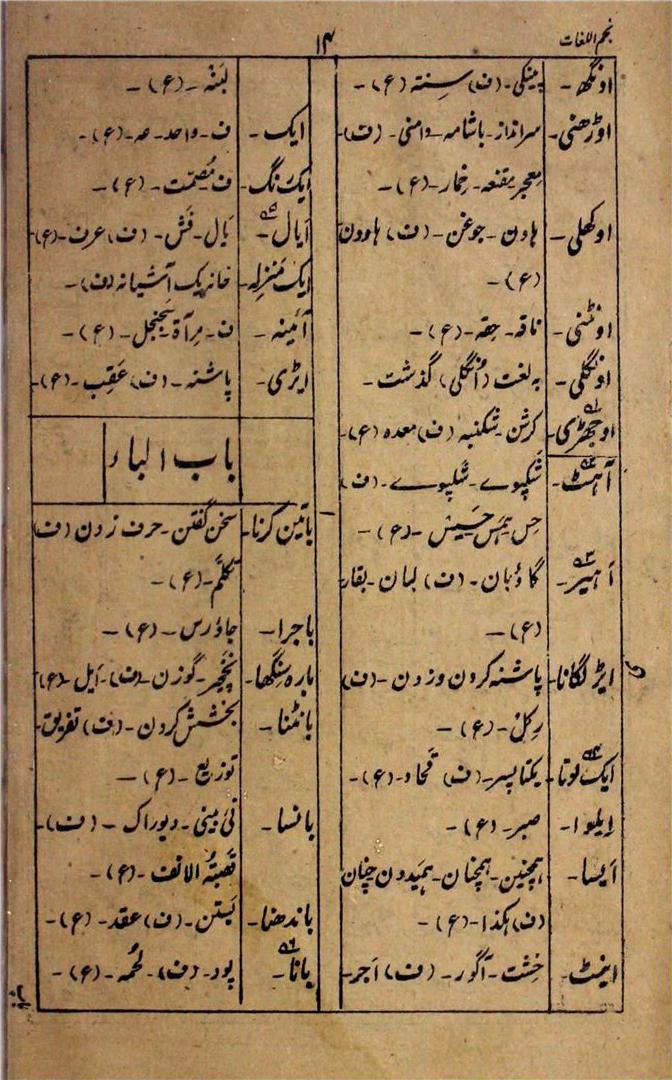 نجم اللغات
۱۴
اونگھ۔ پینکی۔ (ف) سِنتہ (ع)۔
اوڑھنی۔ سرانداز۔ باشامہ۔ دامنی۔ (ف)۔
معجر۔ مقنعہ۔ خمار۔ (ع)۔
اوکھلی۔ ہاون۔ جوغن۔ (ف) ہاوون
(ع)۔
اونٹنی۔ ناقہ۔ حِقہ۔ (ع)۔
اونگلی۔ بہ لغت (اُنگلی) گذشت۔
اوجھڑی۔ کرش۔ شکنبہ (ف) معدہ (ع)۔
آہٹ۔ شَکپوے۔ شَلپوے۔ (ف)
حِس۔ ہمس۔ حَسِیس۔ (ع)۔
اَہیر۔ گاؤبان۔ (ف) لبان۔ بقار
(ع)۔
ایڑ لگانا۔ پاشنہ کردن وزدن۔ (ف)
رکل۔ (ع)۔
ایک لوتا۔ یکتا پسر۔ (ف) قحاد۔ (ع)۔
اِیلوا۔ صبر۔ (ع)۔
اَیسا۔ ہمچنین۔ ہمچنان۔ ہمیدون چنان
(ف) ہکذا۔ (ع)۔
اینٹ۔ خِشت۔ آگور۔ (ف) آجر۔
لَبَنَہ۔ (ع)۔
ایک۔ ف۔ واحد۔ عہ۔ (ع)۔
ایک رنگ۔ ف مُصمّت۔ (ع)۔
اَیال۔ یَال۔ فَش۔ (ف) عرف۔ (ع)۔
ایک مَنزِلہ۔ خانہ یک آشیانہ (ف)۔
آئینہ۔ ف۔ مِرآۃ۔ سَجَنجَل۔ (ع)۔
ایڑی۔ پاشنہ۔ (ف) عَقِب۔ (ع)۔
باب الباء
باتین کرنا۔ سخن گفتن۔ حرف زدن (ف)
تکلّم۔ (ع)۔
باجرا۔ جاوٗرس۔ (ع)۔
بارہ سنگھا۔ نَخچیر۔ گوزن۔ (ف)۔ اَیل۔ (ع)
بانٹنا۔ بخشش کردن۔ (ف) تفریق۔
توزیع۔ (ع)۔
بانسا۔ نَیِ بینی۔ دیوراک۔ (ف)۔
قَصَبَۃُ الانف۔ (ع)۔
باندھنا۔ بَستن۔ (ف) عقد۔ (ع)۔
بانا۔ پود۔ (ف)۔ لُحمہ۔ (ع)۔